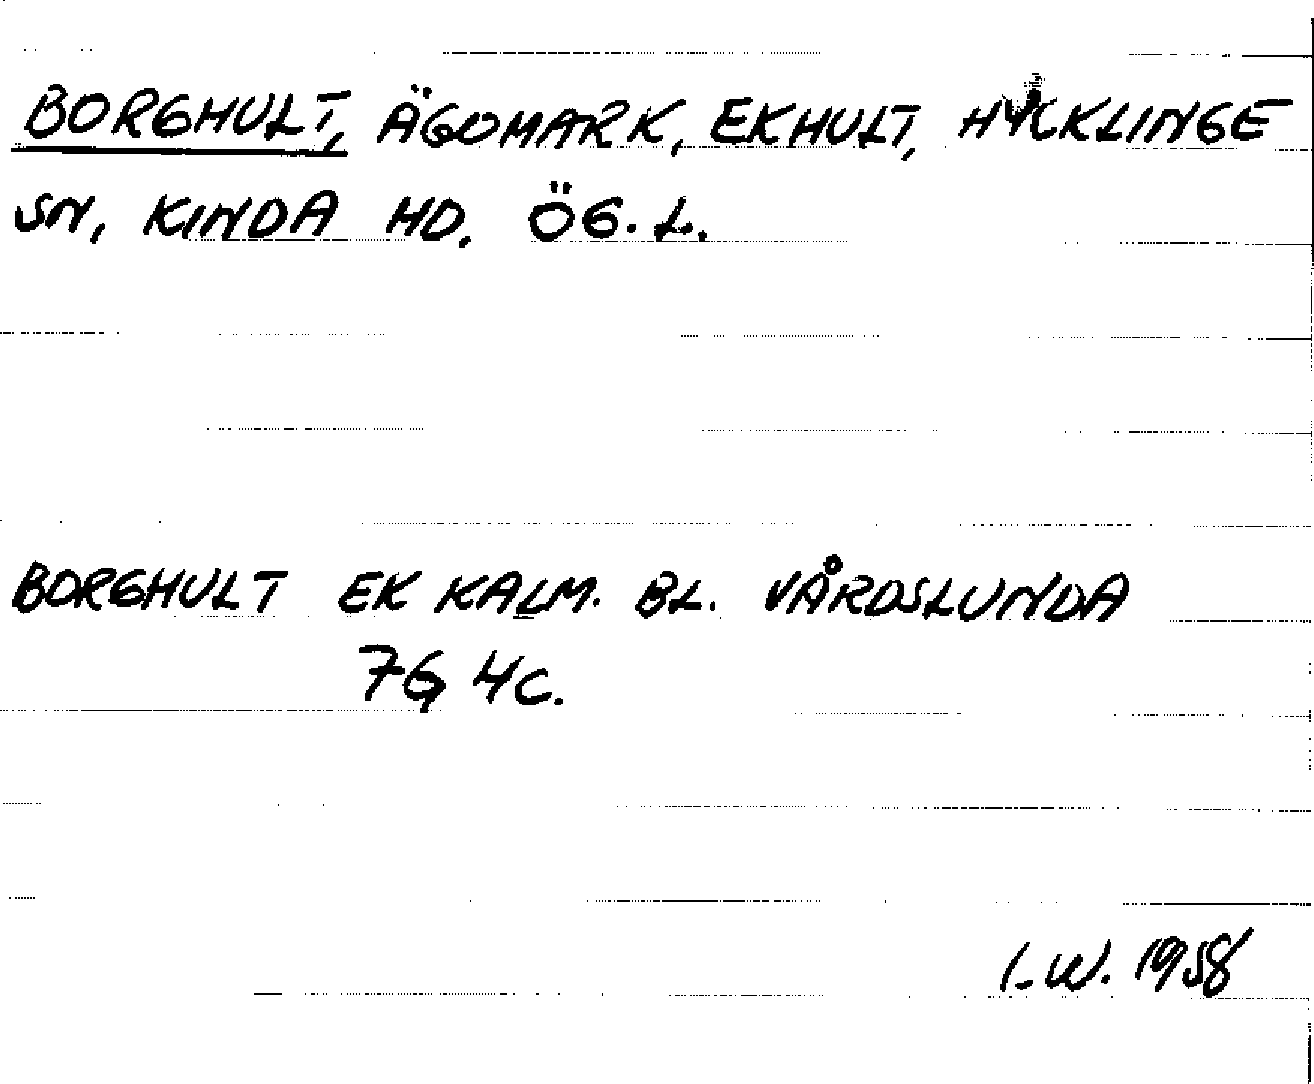 BORGHULT, ÄGOMARK, EKHULT, HYCKLINGE
SN, KINDA HD, ÖG. L.
BORGHULT EK KALM. BL. VÅRDSLUNDA
7G 4C.
I.W. 1958